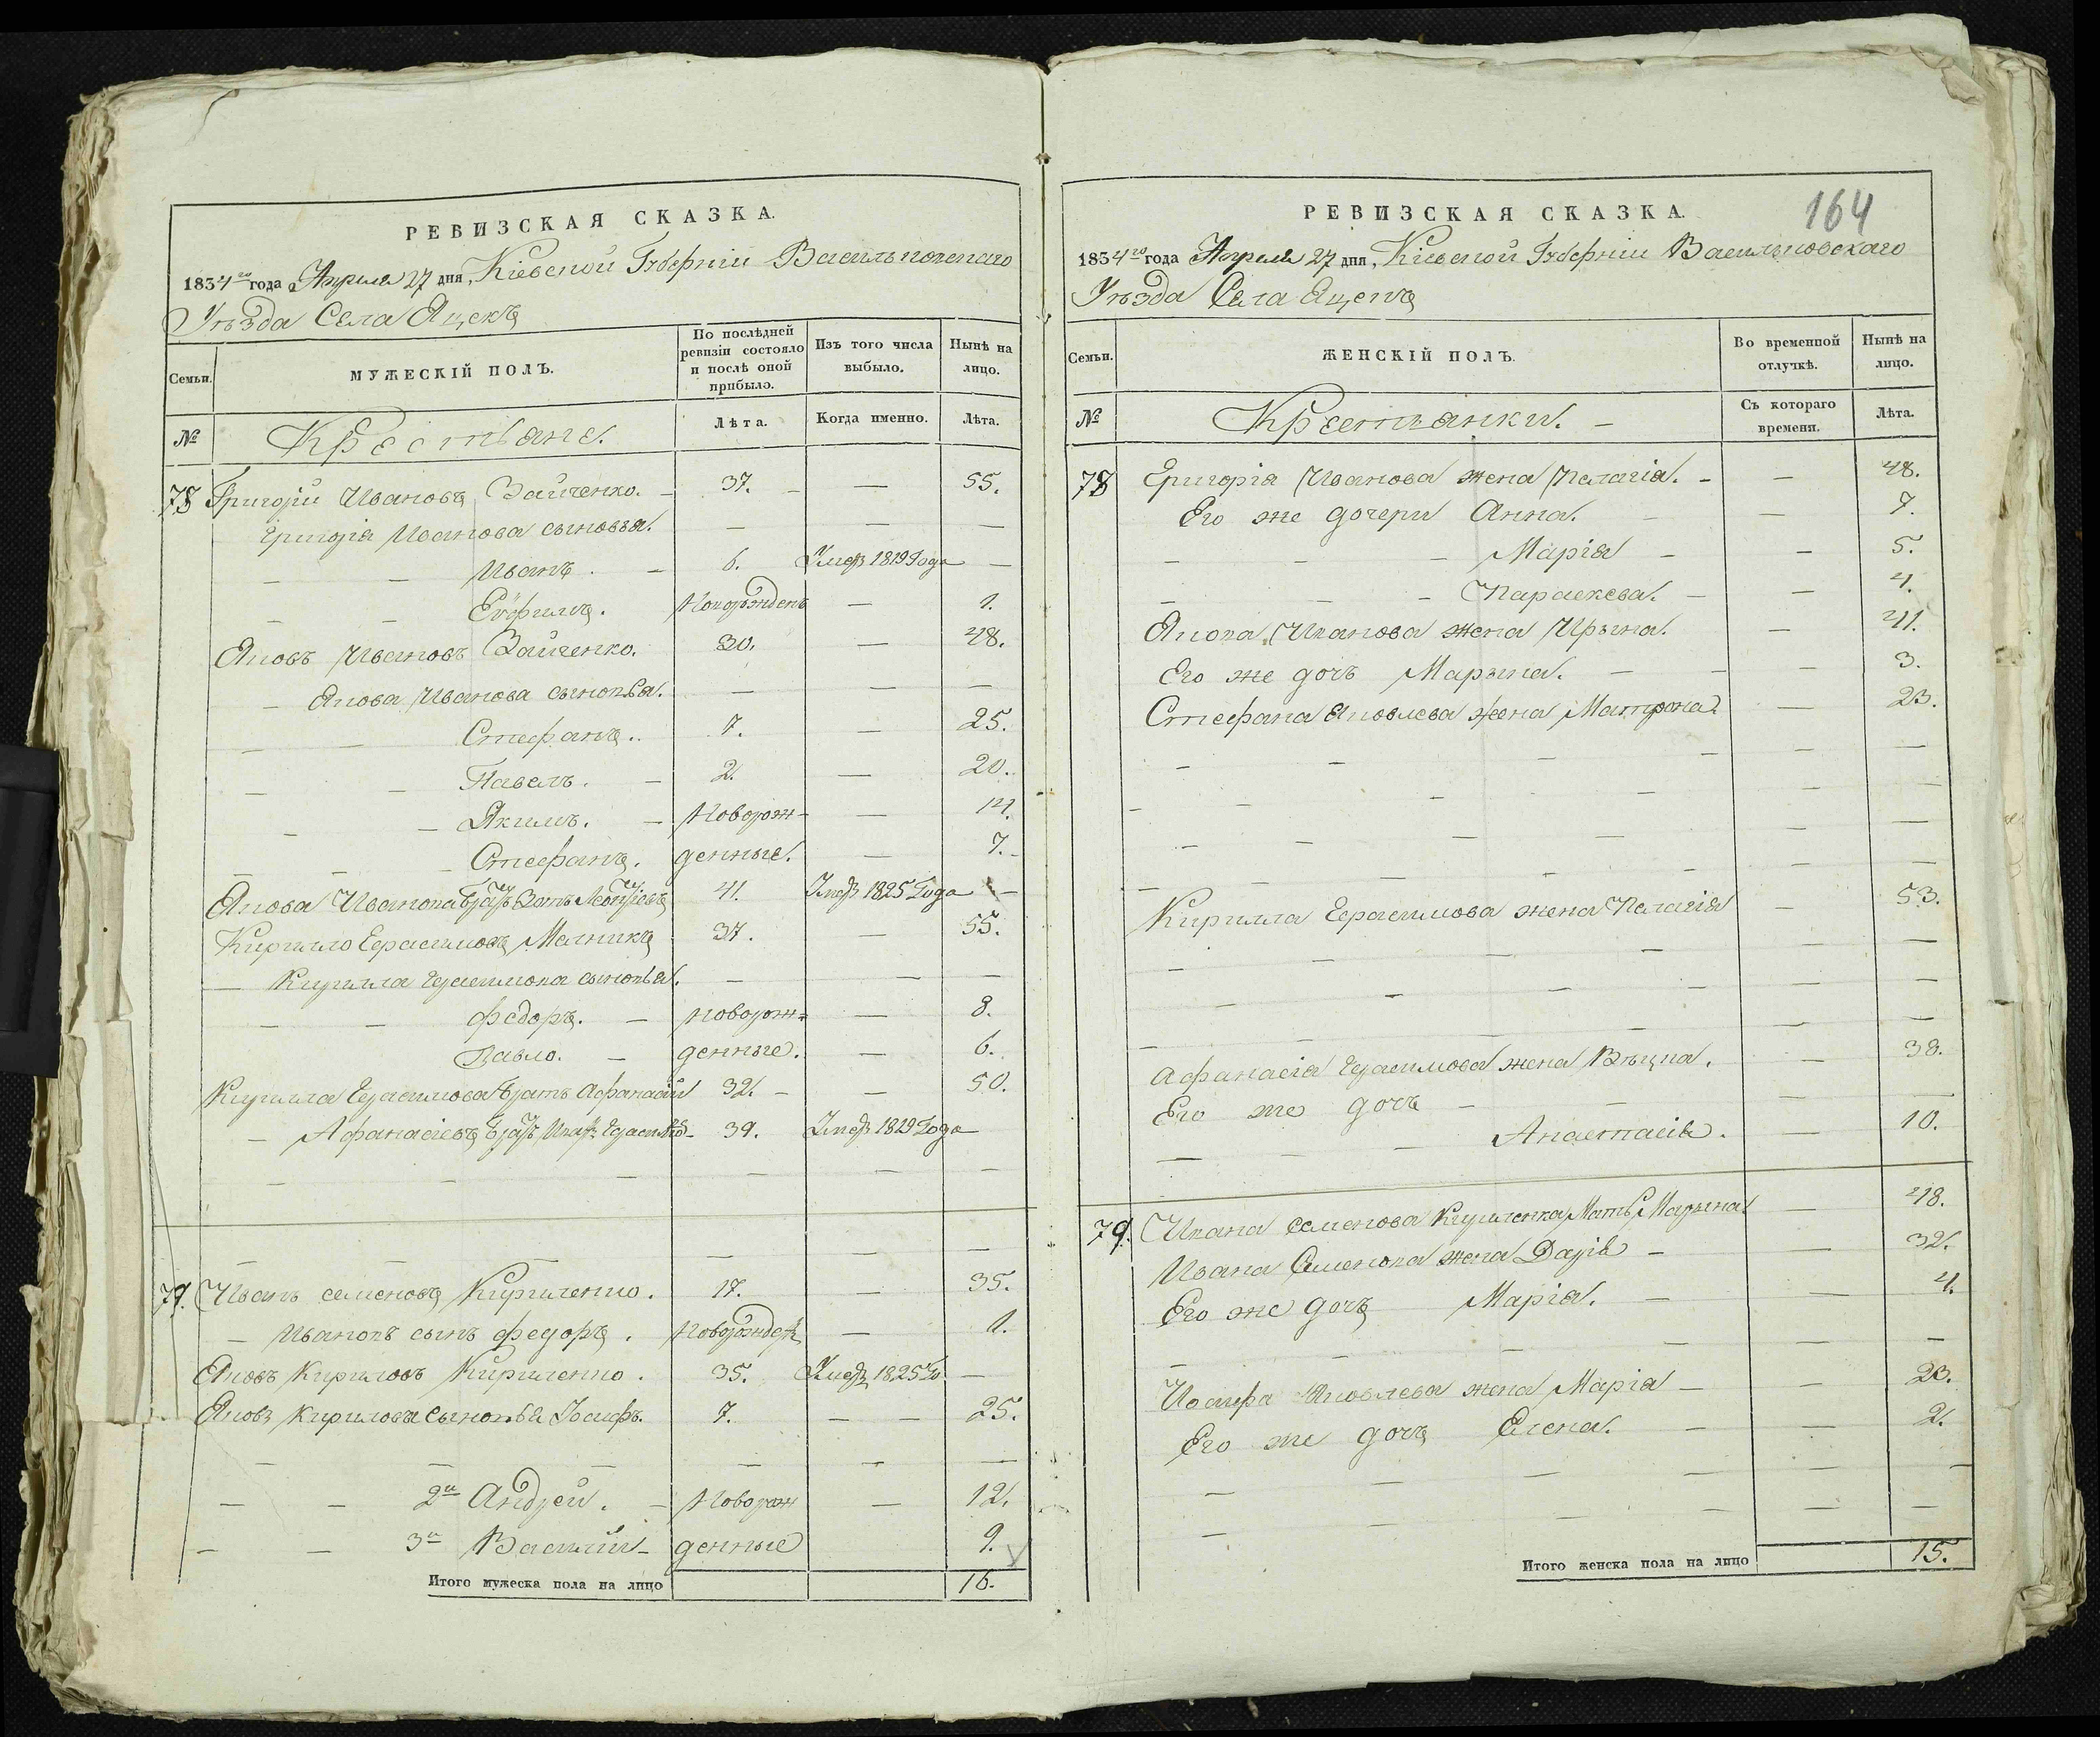 РЕВИЗСКАЯ СКАЗКА.
1834го года Апреля 27 дня, Кіевской Губерніи Васильковскаго
Уѣзда Села Яцекъ
Семьи. МУЖЕСКІЙ ПОЛЪ. По послѣдней ревизіи состояло и послѣ оной прибыло. Изъ того числа выбыло. Нынѣ на лицо.
№ Крестьяне. Лѣта. Когда именно. Лѣта.
78 Григорій Ивановъ Зайченко. — 37. — — 55.
Григорія Иванова сыновья. — — —
— — Иванъ. — 6. Умеръ 1819 Года —
— — Евфимъ. Новорожденъ — 1.
Яковъ Ивановъ Зайченко. 30. — 48.
— Якова Иванова сыновья. — — —
— — Стефанъ. 7. — 25.
— — Павелъ. — 2. — 20.
— — Якимъ. — Новорож- — 14.
— — Стефанъ. денные. — 7.
Якова Иванова братъ 41. Умеръ 1825 Года —
Кирилло Герасимовъ Мелникъ 37. — 55.
— Кирилла Герасимова сыновья. — — —
— — Федоръ. — новорож= — 8.
Павло. — денные. — 6.
Кирилла Герасимова братъ Афанасій 32. — — 50.
— Афанасіевъ братъ Герасимовъ 39. Умеръ 1819 Года
— — — — — —
— — — — —
79. Иванъ Семеновъ Кириленко. 17. — 35.
— Ивановъ сынъ Федоръ. Новорожденъ — 1.
Яковъ Кириловъ Кириленко. 35. Умеръ 1825 Го —
Яковъ Кирилова сыновья Іосифъ. 7. — — 25.
— — — — — —
— — 2й Андрей. — Новорож — 12.
— — 3й Василій — денные 9.
Итого мужеска пола на лицо 16.
164
РЕВИЗСКАЯ СКАЗКА.
1834го года Апреля 27 дня, Кіевской Губерніи Васильковскаго
Уѣзда Села Яцекъ
Семьи. ЖЕНСКІЙ ПОЛЪ. Во временной отлучкѣ. Нынѣ на лицо.
№ Крестьянки. — Съ котораго времени. Лѣта.
78 Григорія Иванова жена Пелагія. — — 48.
Его же дочери Анна. — — 7.
— — — Марія — — 5.
— — — Параскева. — — 4.
Якова Иванова жена Ирына. — 41.
Его же дочь Марына. — — — 3.
Стефана Яковлева жена Матрона. — 23.
— — — — — —
— — — — —
— — — — —
— — — — — —
Кирилла Герасимова жена Пелагія — 53.
— — — — — —
— — — — —
— — — — —
Афанасія Герасимова жена — 38.
Его же дочь — — — —
— — — Анастасія. — 10.
79. Ивана Семенова Кириленка Мать Марына — 48.
Ивана Семенова жена Дарія — — 32.
Его же дочь Марія. — — 4.
— — — — — —
Іосифа Яковлева жена Марія — — 23.
Его же дочь Елена. — — 2.
— — — — — —
— — — — —
Итого женска пола на лицо 15.